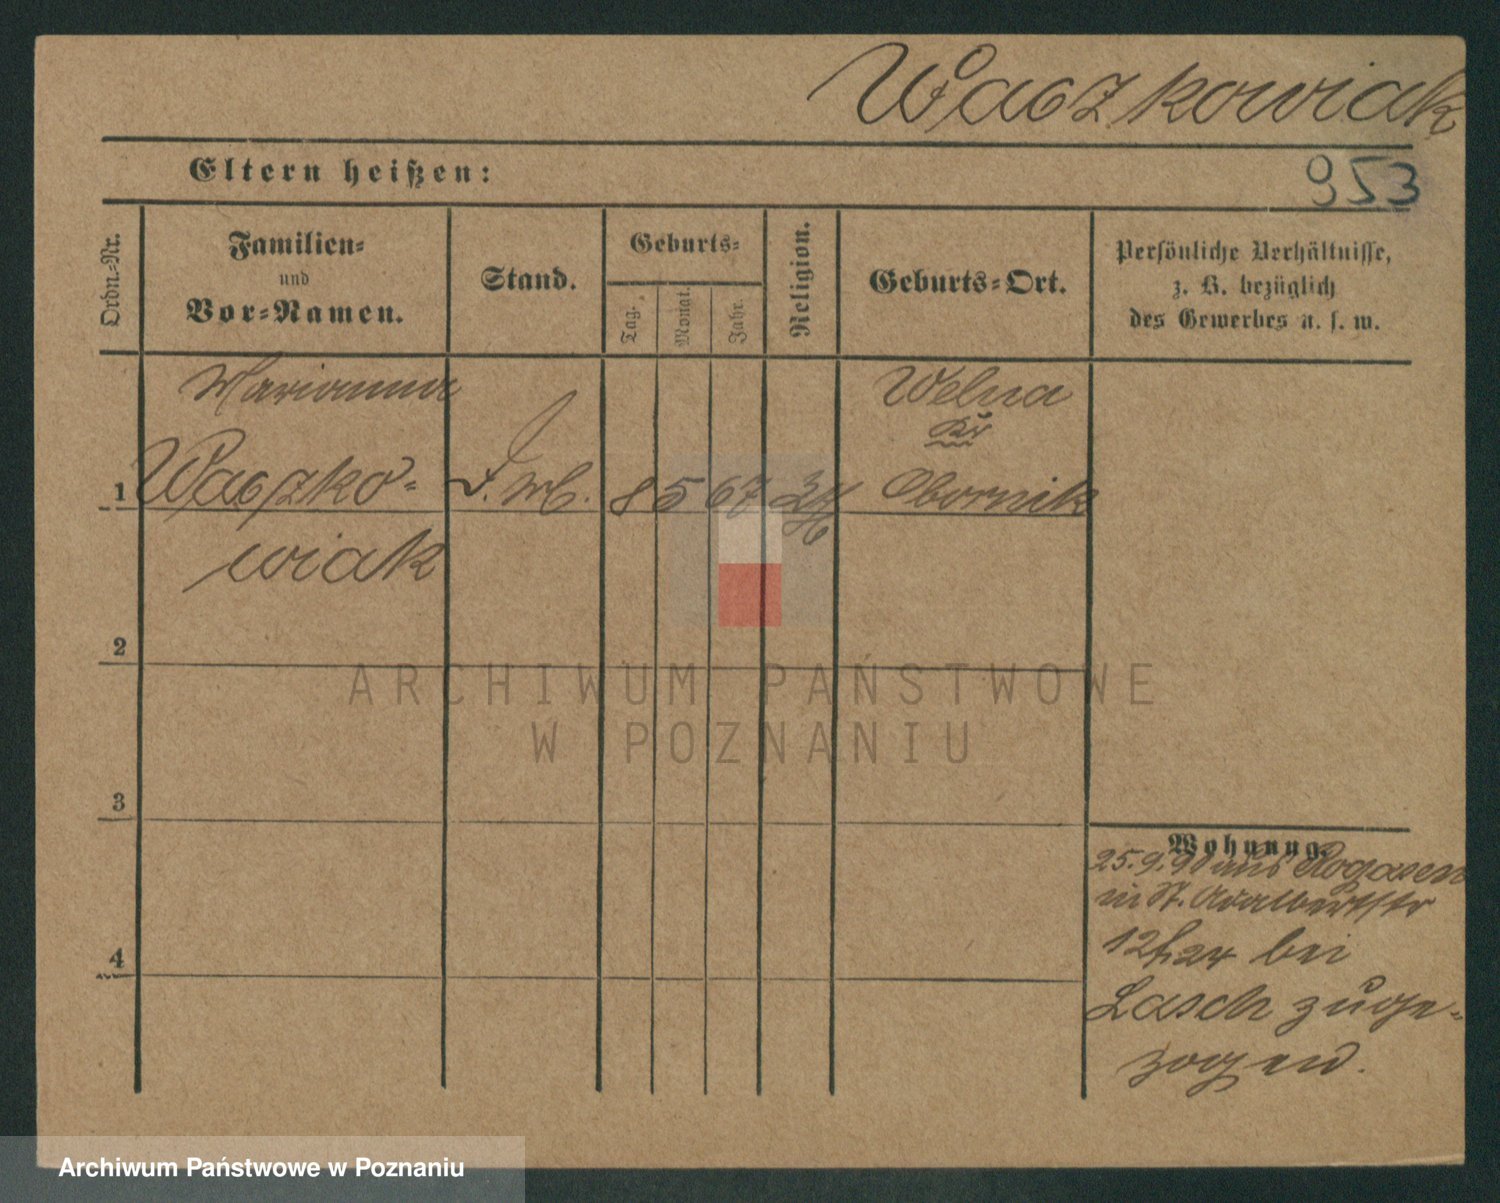 Waczkowiak
Eltern heißen:
953
Ordn.-Nr.
Familien-
und
Vor-Namen.
Stand.
Geburts-
Tag.
Monat.
Jahr.
Religion.
Geburts-Ort.
Persönliche Verhältnisse,
z. B. bezüglich
des Gewerbes u. s. w.
Marianna
Welna
Kr
1 Waczko- 8 5 67 Obornik
wiak
2
3
4
Wohnung.
25.9.90 aus Rogasen
in St. Adalbertstr
12 bei
Lasch zuge-
zogen.
ARCHIWUM PAŃSTWOWE
W POZNANIU
Archiwum Państwowe w Poznaniu